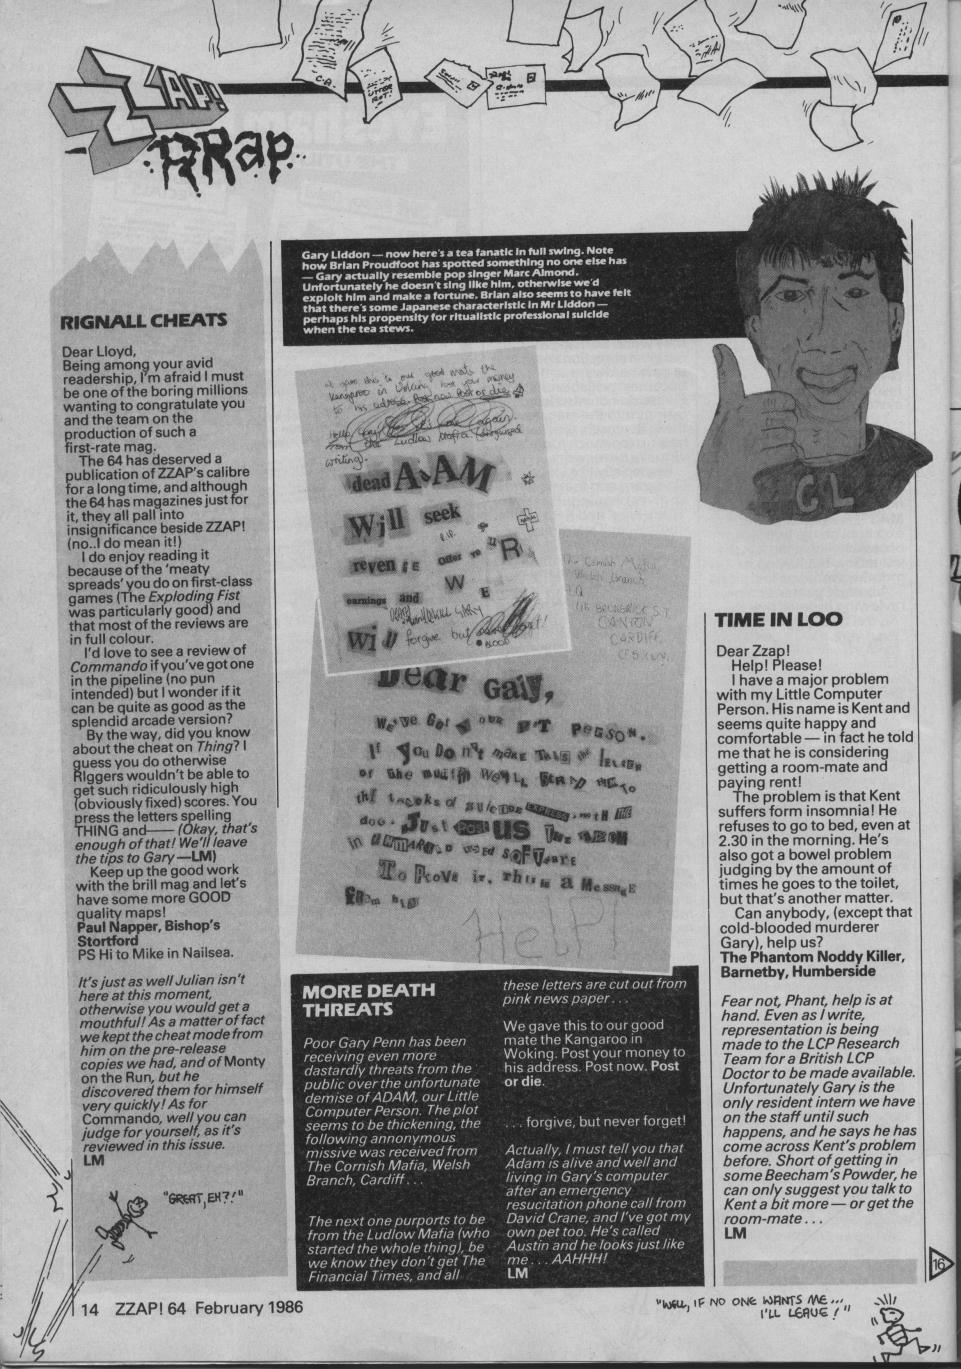 ZZAP!
RRap
Gary Liddon — now here's a tea fanatic in full swing. Note
how Brian Proudfoot has spotted something no one else has
— Gary actually resemble pop singer Marc Almond.
Unfortunately he doesn't sing like him, otherwise we'd
exploit him and make a fortune. Brian also seems to have felt
that there's some Japanese characteristic in Mr Liddon —
perhaps his propensity for ritualistic professional suicide
when the tea stews.
GL
RIGNALL CHEATS
Dear Lloyd,
Being among your avid
readership, I'm afraid I must
be one of the boring millions
wanting to congratulate you
and the team on the
production of such a
first-rate mag.
The 64 has deserved a
publication of ZZAP's calibre
for a long time, and although
the 64 has magazines just for
it, they all pall into
insignificance beside ZZAP!
(no..I do mean it!)
I do enjoy reading it
because of the 'meaty
spreads' you do on first-class
games (The Exploding Fist
was particularly good) and
that most of the reviews are
in full colour.
I'd love to see a review of
Commando if you've got one
in the pipeline (no pun
intended) but I wonder if it
can be quite as good as the
splendid arcade version?
By the way, did you know
about the cheat on Thing? I
guess you do otherwise
RIggers wouldn't be able to
get such ridiculously high
(obviously fixed) scores. You
press the letters spelling
THING and—— (Okay, that's
enough of that! We'll leave
the tips to Gary —LM)
Keep up the good work
with the brill mag and let's
have some more GOOD
quality maps!
Paul Napper, Bishop's
Stortford
PS Hi to Mike in Nailsea.
It's just as well Julian isn't
here at this moment,
otherwise you would get a
mouthful! As a matter of fact
we kept the cheat mode from
him on the pre-release
copies we had, and of Monty
on the Run, but he
discovered them for himself
very quickly! As for
Commando, well you can
judge for yourself, as it's
reviewed in this issue.
LM
"GREAT, EH?!"
we gave this to our good mate the
Kangaroo in Woking post your money
to his address Post now Post or die
from the Ludlow Mafia (disguised
writing).
dead ADAM
Will seek
R.I.P.
revenge Offer to UR
earnings and W E
Will forgive but
BLOOD
The Cornish Mafia,
Welsh Branch,
CANTON
CARDIFF
Dear Gary,
We've Got OUR PET PERSON.
If You Don't make This
To Prove it, This is a Message
From him
HELP!
MORE DEATH
THREATS
Poor Gary Penn has been
receiving even more
dastardly threats from the
public over the unfortunate
demise of ADAM, our Little
Computer Person. The plot
seems to be thickening, the
following annonymous
missive was received from
The Cornish Mafia, Welsh
Branch, Cardiff . . .
The next one purports to be
from the Ludlow Mafia (who
started the whole thing), be
we know they don't get The
Financial Times, and all
these letters are cut out from
pink news paper . . .
We gave this to our good
mate the Kangaroo in
Woking. Post your money to
his address. Post now. Post
or die.
. . . forgive, but never forget!
Actually, I must tell you that
Adam is alive and well and
living in Gary's computer
after an emergency
resucitation phone call from
David Crane, and I've got my
own pet too. He's called
Austin and he looks just like
me . . . AAHHH!
LM
TIME IN LOO
Dear Zzap!
Help! Please!
I have a major problem
with my Little Computer
Person. His name is Kent and
seems quite happy and
comfortable — in fact he told
me that he is considering
getting a room-mate and
paying rent!
The problem is that Kent
suffers form insomnia! He
refuses to go to bed, even at
2.30 in the morning. He's
also got a bowel problem
judging by the amount of
times he goes to the toilet,
but that's another matter.
Can anybody, (except that
cold-blooded murderer
Gary), help us?
The Phantom Noddy Killer,
Barnetby, Humberside
Fear not, Phant, help is at
hand. Even as I write,
representation is being
made to the LCP Research
Team for a British LCP
Doctor to be made available.
Unfortunately Gary is the
only resident intern we have
on the staff until such
happens, and he says he has
come across Kent's problem
before. Short of getting in
some Beecham's Powder, he
can only suggest you talk to
Kent a bit more — or get the
room-mate . . .
LM
16
14 ZZAP! 64 February 1986
"WELL, IF NO ONE WANTS ME...
I'LL LEAVE!"